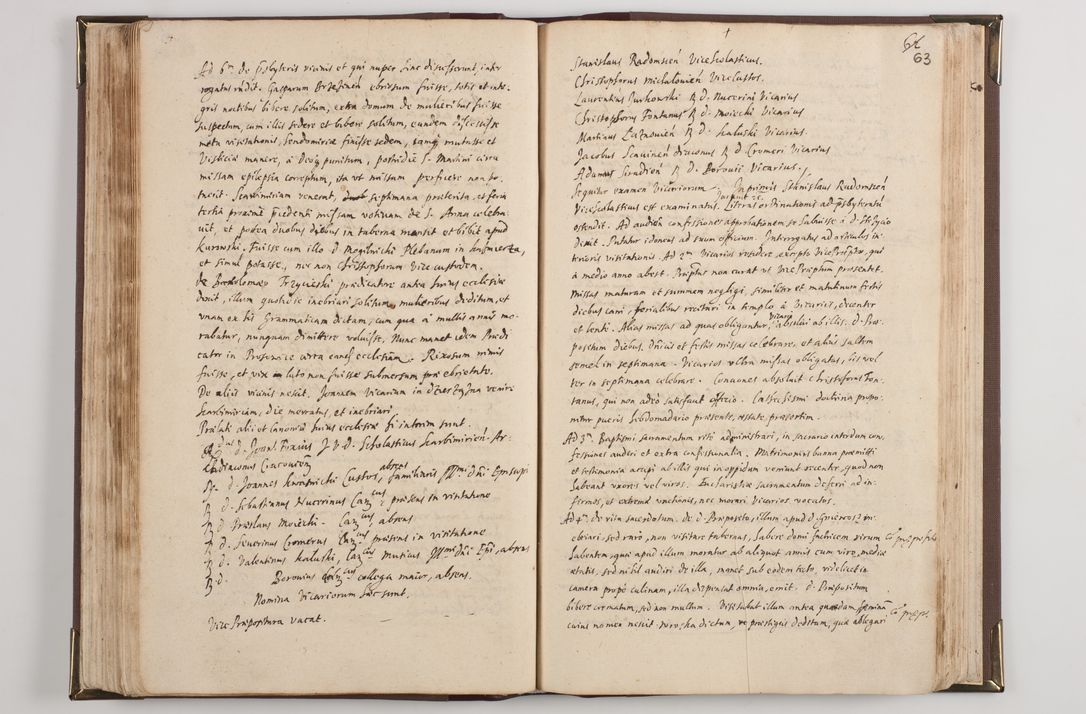 Ad 6m de Presbyteris viciniis et qui nuper hinc discesserunt, inter
rogatus rndit. Gasparum Brzesinen ebriosum fuisse, totis et inte-
gris noctibus bibere solitum, extra domum de mulieribus fuisse
suspectum, cum illis sedere et bibere solitum, eundem discessisse
metu visitationis, Sendomiriae fuisse sedem,
Vislicia manere, a Deo punitum, postridie S. Martini circa
missam epilepsia correptum, ita ut missam perficere non po-
tuerit. Scarbimiriam venerat, septimana praeterita, et feria
tertia proxime praecedenti missam votivam de S. Anna celebra
uit, et postea duobus diebus in taberna mansit et bibit apud
Kuroński. Fuisse cum illo d. Mogilnicki Plebanum in
et simul potasse, nec non Christophorum Vicecustodem.
De Bartolomeo Trzycieski praedicatore antea huius ecclesiae
dixit, illum quotidie inebriari solitum, mulieribus deditum, et
unam ex his Grammaticam dictam, cum qua a multis annis mo-
rabatur, nunquam dimittere voluisse. Nunc manet idem Praedi
cator in Proszowice circa eandem ecclesiam. Rixosum nimis
fuisse, et vix in luto non fuisse submersum prae ebrietate.
De aliis vicinis nescit. Joannem Vicarium in Dzierzążna venire
Scarbimiriam, die moratus, et inebriari
Praelati alii et Canonici huius ecclesiae hi interim sunt.
R. dnus d. Joan. Fraxius J.V.D. Scholasticus Scarbimirien. Ar-
chidiaconus Cracovien
R. d. Joannes Kurepnicki Custos, absens familiaris Illmi dni Epi supi
R. d. Sebastianus Nucerinus Can.cus, praesens in visitatione
R. d. Preslaus Moiecki. Can.cus, absens
R. d. Severinus Cromerus Can.cus praesens in visitatione
R. d. Valentinus Kaluski, Can.cus Musicus Illmi dni Epi, absens
R. d. Borovius Can.cus collega maior, absens.
Nomina Vicariorum haec sunt.
Vice Praepositura vacat.
62
63
Stanislaus Radomien Vicescolasticus.
Christophorus Michalovien Vicecustos.
Laurentius Purkowski R. d. Nucerini Vicarius
Christophorus Fontanus R. d. Moiecki Vicarius
Martinus Laznovien R. d. Kaluski Vicarius.
Jacobus Scavinen diaconus R. d. Cromeri Vicarius
Adamus Siradien R. d. Borouii Vicarius.
Sequitur examen Vicariorum. In primis Stanislaus Radomien
Vicescolasticus est examinatus. Literas ordinationis ad presbyteratum
ostendit. Ad audien confessiones approbationem se habuisse a d.
dixit. Putatur idoneus ad suum officium. Interrogatus ad articulos in-
terioris visitationis. Ad 2m Vicarios residere, excepto Vicepraeposito, qui
a medio anno abest. Praepositus non curat ut Vicepraepositum praesentet.
Missas maturam et summam negligi, similiter et matutinum festis
diebus cani, ferialibus recitari in templo a Vicariis, decenter
et lente. Alias missas ad quas obligantur, Vicarii absolui ab illis. d. Prae-
positum diebus dnicis et festis missas celebrare, et aliis saltem
semel in septimana. Vicarios ultra missas obligatas, bis vel
ter in septimana celebrare. Conciones absoluit Christoforus Fon-
tanus, qui non adeo satisfacit officio. Catechismi doctrina propo-
nitur pueris hebdomadario praesente, aestate, praesertim.
Ad 3m. Baptismi sacramentum rite administrari, in sacrario interdum con-
fessiones audiri et extra confessionalia. Matrimoniis banna praemitti
et testimonia accipi ab illis qui in oppidum veniunt recenter, quod non
habeant uxores vel viros. Eucharistiae sacramentum deferri ad in-
firmos, et extremae unctionis, nec morari Vicarios vocatos.
Ad 4m. De vita sacerdotum. De d. Praeposito, illum apud d. Gnieuosz in-
ebriari sed raro, non visitare tabernas, habere domi sechicem virum
habentem, quae apud illum moratur ab aliquot annis cum viro, mediae
aetatis, sed nihil audiri de illa, manet sub eodem tecto, videlicet in
camera prope culinam, illa dispensat omnia, emit. d. Praepositum
bibere crematum, sed non multum. Visitabat illum antea quaedam femina
cuius nomen nescit. dictam, ve praestigiis deditam, quae ablegari